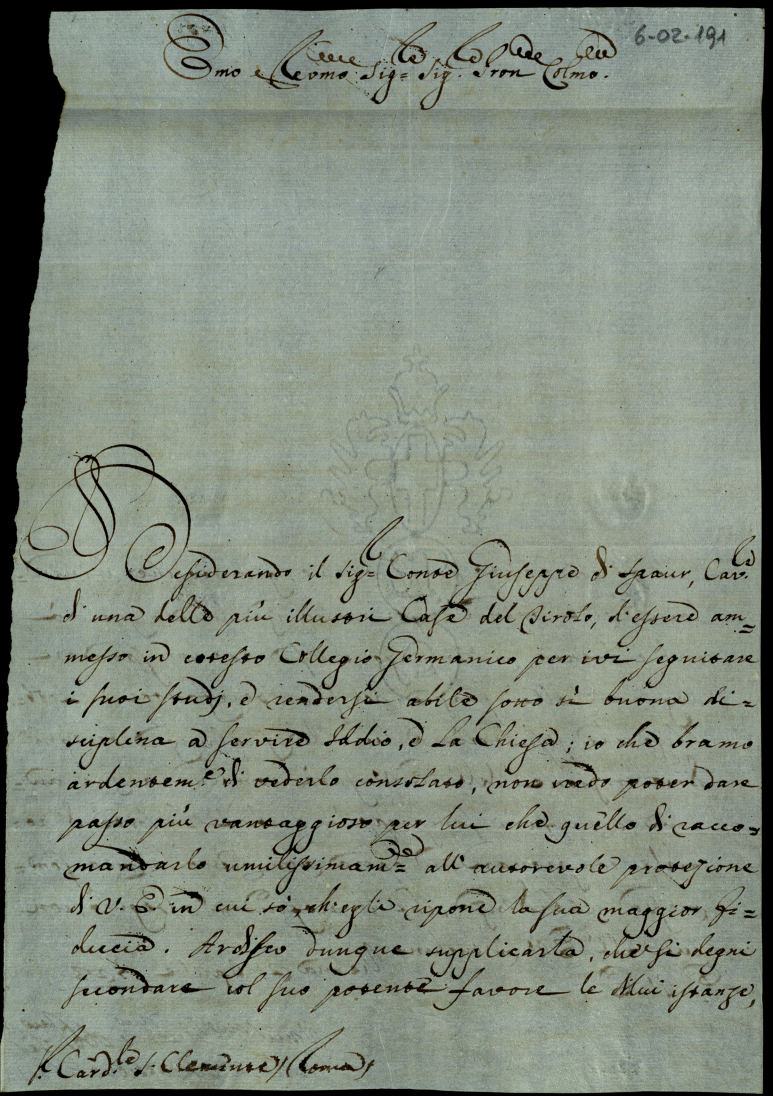 6-02-191
Emo e Revmo Sig.re Sig.r Pron Colmo.
Desiderando il sig.r Conte Giuseppe di Spaur, Cav.re
di una delle più illustri Case del Tirolo, d'essere am=
messo in cotesto Collegio Germanico per ivi seguitare
i suoi studj, e rendersi abile sotto sì buona di=
sciplina a servire Iddio, e la Chiesa; io che bramo
ardentem.e di vederlo consolato, non vedo poter dare
passo più vantaggioso per lui che quello di racco=
mandarlo umilissimam.te all'autorevole protezione
di V. E. in cui sò, ch'egli ripone la sua maggior fi=
ducia. Ardisco dunque supplicarla, che si degni
secondare col suo potente favore le di lui istanze,
S. Card.le S. Clemente (Roma)